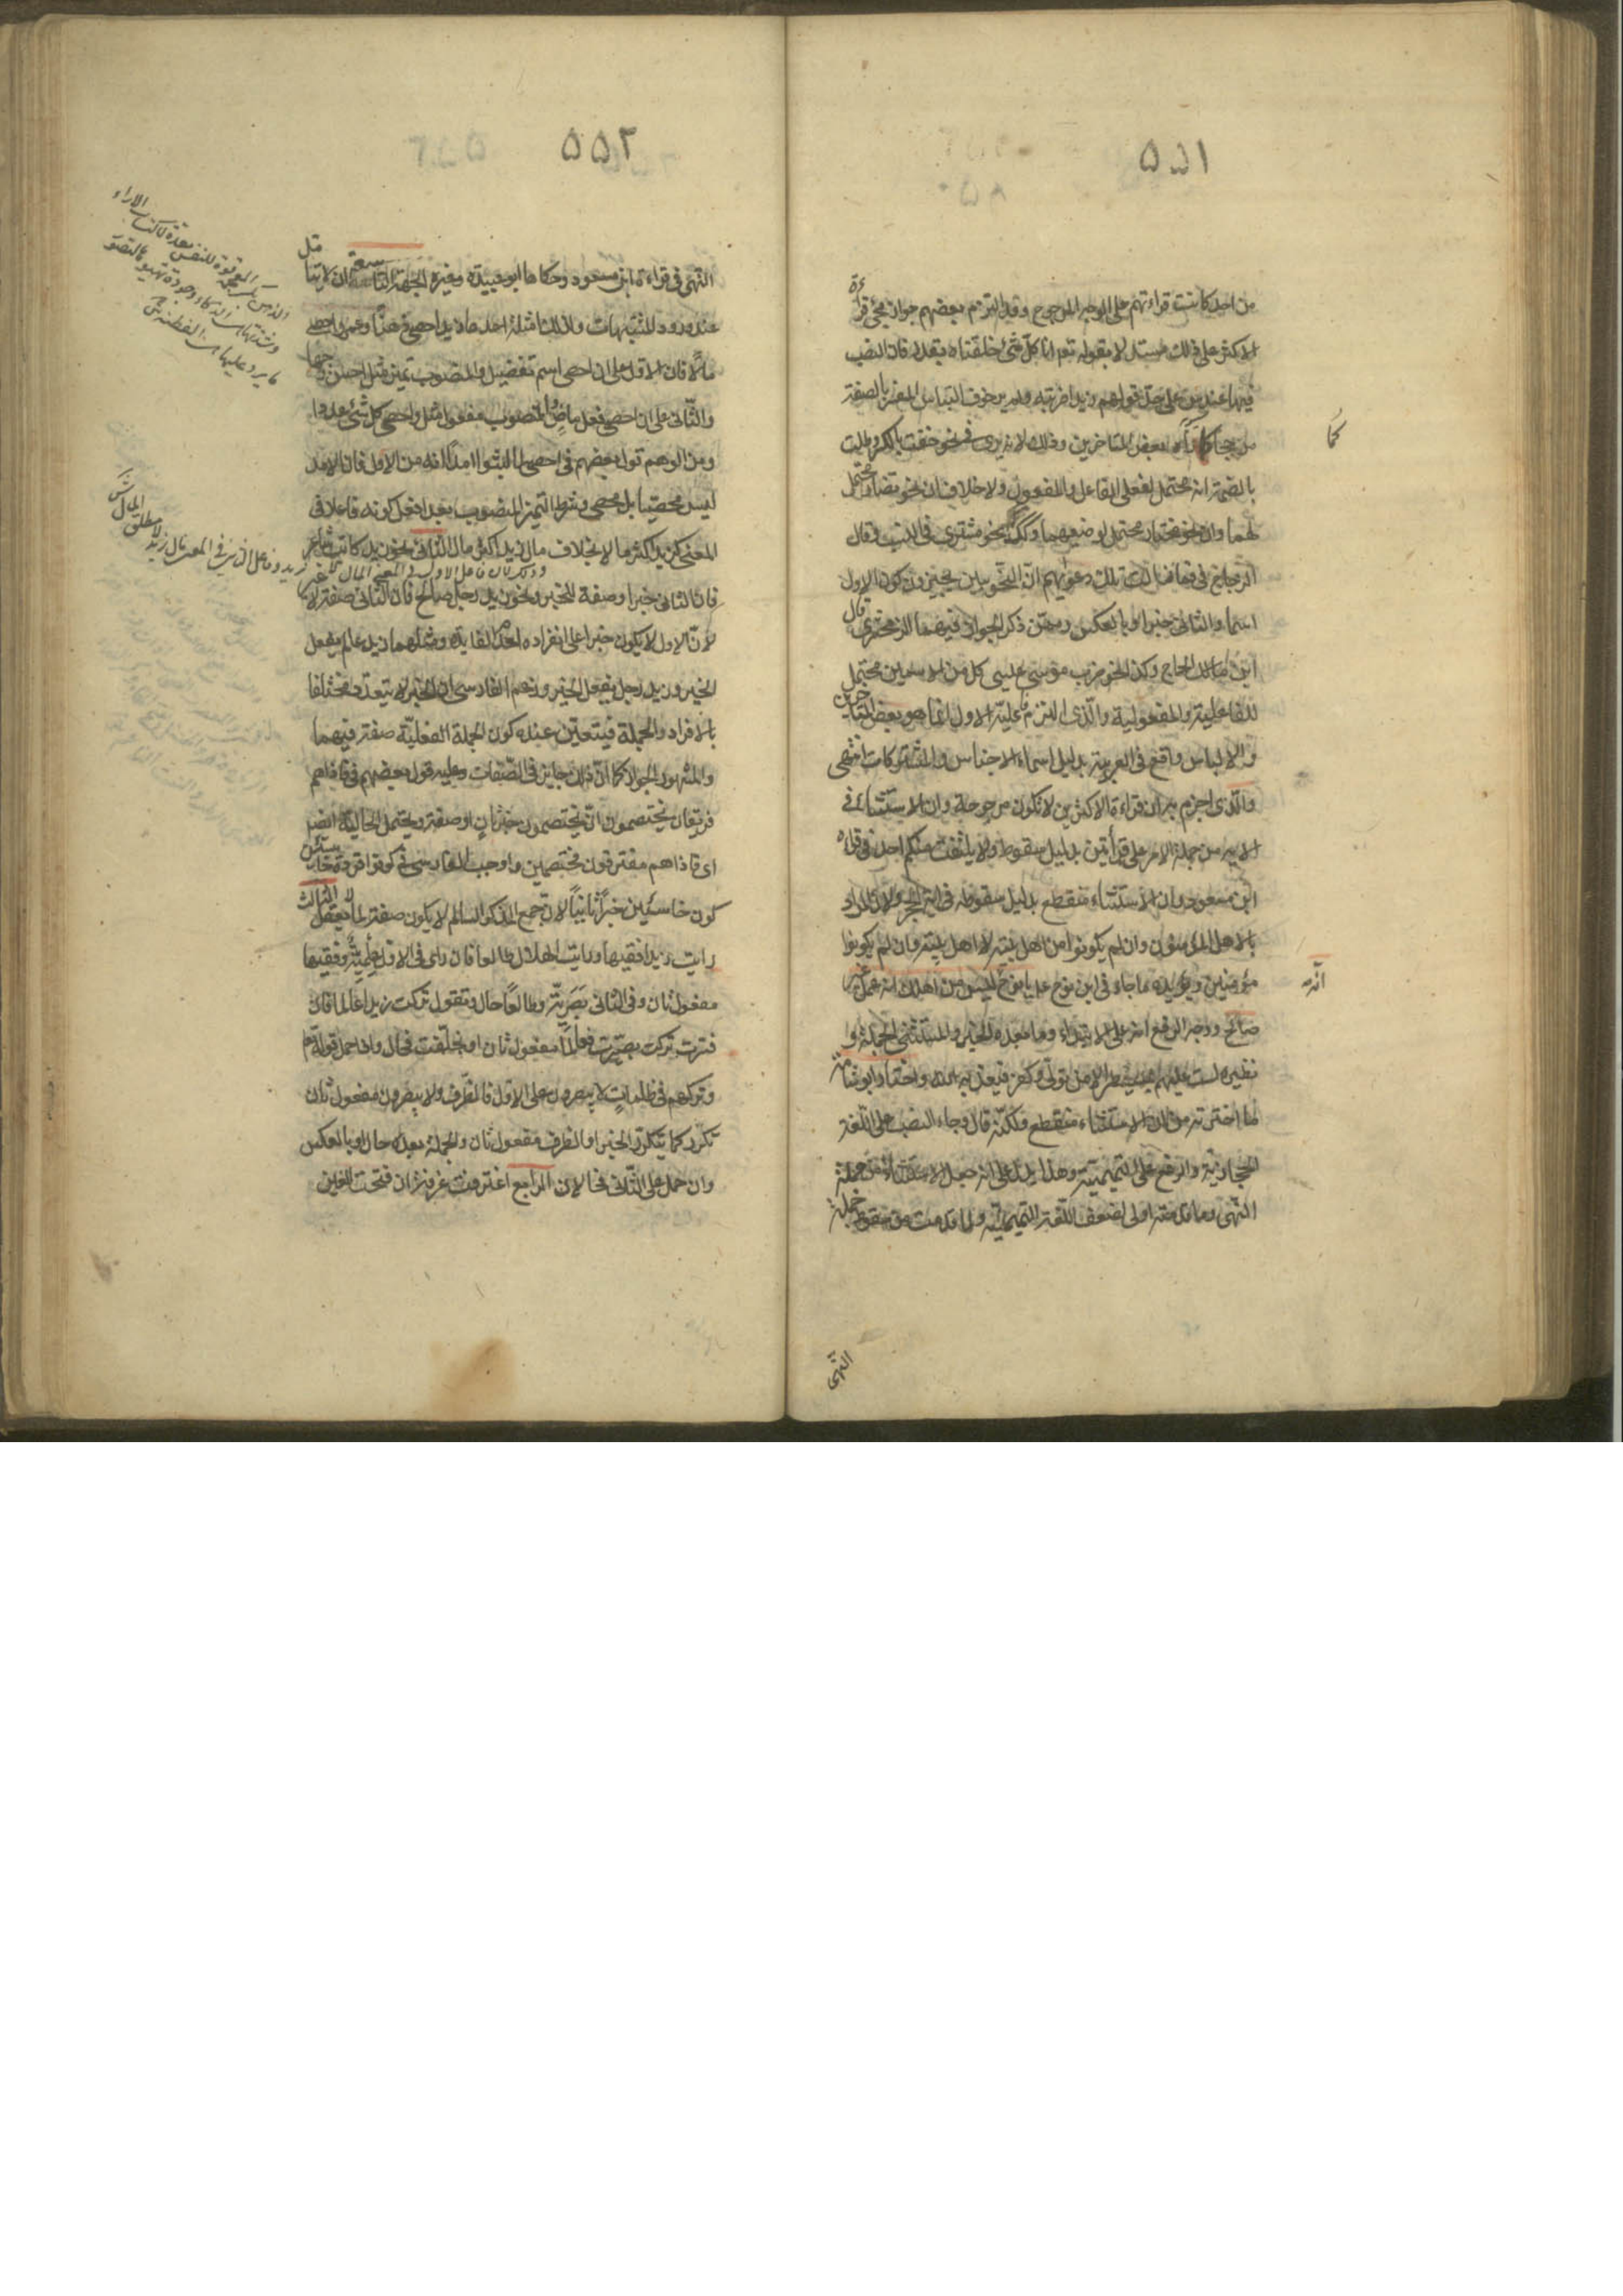 ٥٥١
من احد كانت قراءتهم على الوجه المرجوح وقد التزم بعضهم جواز مجئ قراءة
الاكثر على ذلك مستدلا بقوله تعم انا كل شئ خلقناه بقدر فان النصب
فيها عند س على حد قولهم زيدا ضربته ولم ير خوف التباس المفسر بالصفة
مرجحا كما رآه بعض المتاخرين وذلك لانه يرى فى نحو خفت بالكسر وطلت
كما
بالضم انه محتمل لفعلى الفاعل والمفعول ولا خلاف ان نحو تضار محتمل
لهما وان نحو مختار محتمل لوضعيهما وكك نحو مشترى فى النسب وقال
الزجاج فى فما زالت تلك دعويهم ان النحويين يجيزون كون الاول
اسما والثانى خبرا او بالعكس وممن ذكر الجواز فيهما الزمخشرى قال
ابن الحاج وكذا نحو ضرب موسى عيسى كل من الاسمين محتمل
للفاعلية والمفعولية والذى التزم فاعلية الاول انما هو بعض المتاخرين
والالباس واقع فى العربية بدليل اسماء الاجناس والمشتركات انتهى
والذى اجزم به ان قراءة الاكثرين لا تكون مرجوحة وان الاستثناء فى
الآية من جملة الامر على قرأتين بدليل سقوط ولا يلتفت منكم احد فى قراءة
ابن مسعود وان الاستثناء منقطع بدليل سقوطه فى آية الحجر ولان المراد
بالاهل المؤمنون وان لم يكونوا من اهل بيته لا اهل بيته وان لم يكونوا
مؤمنين ويؤيده ما جاء فى ابن نوح عم يا نوح انه ليس من اهلك انه عمل غير
انه
صالح ووجه الرفع انه على الابتداء وما بعده الخبر والمستثنى الجملة و
نظيره لست عليهم بمسيطر الا من تولى وكفر فيعذبه الله واختار ابو شامة
ما اخترته من ان الاستثناء منقطع ولكنه قال وجاء النصب على اللغة
الحجازية والرفع على التميمية وهذا يدل على انه جعل الاستثناء من جملة
النهى وما قدمته اولى لضعف اللغة التميمية ولما قدمت من سقوط جملة
النهى
٥٥٢
النهى فى قراءة ابن مسعود وحكاها ابو عبيدة وغيره الجهة التاسعة ان لا يتامل
عند ورود المشتبهات ولذلك امثلة احدها زيد احصى ذهنا وعمرو احصى
مالا فان الاول على ان احصى اسم تفضيل والمنصوب تميز مثل احسن وجها
والثانى على ان احصى فعل ماض والمنصوب مفعول مثل واحصى كل شئ عددا
ومن الوهم قول بعضهم فى احصى لما لبثوا امدا انه من الاول فان الامد
ليس محصيا بل محصى وشرط التميز المنصوب بعد افعل كونه فاعلا فى
المعنى كزيد اكثر مالا بخلاف مال زيد اكثر مال الثانى نحو زيد كاتب شاعر
فان الثانى خبر او صفة للخبر ونحو زيد رجل صالح فان الثانى صفة لا غير
لان الاول لا يكون خبرا على انفراده لعدم الفايدة ومثلهما زيد عالم يفعل
الخير وزيد رجل يفعل الخير وزعم الفارسى ان الخبر لا يتعدد مختلفا
بالافراد والجملة فيتعين عنده كون الجملة الفعلية صفة فيهما
والمشهور الجواز كما ان ذلك جايز فى الصفات وعليه قول بعضهم فى فاذاهم
فريقان يختصمون ان يختصمون خبر ثان او صفة ويحتمل الحالية ايضا
اى فاذاهم مفترقون مختصمين واوجب الفارسى فى كونوا قردة خاسئين
كون خاسئين خبرا ثانيا لان جمع المذكر السالم لا يكون صفة لما لا يعقل الثالث
رايت زيدا فقيها ورايت الهلال طالعا فان راى فى الاول علمية وفقيها
مفعول ثان وفى الثانى بصرية وطالعا حال وتقول تركت زيدا عالما فان
فسرت تركت بصيرت فعالما مفعول ثان او بخلفت فحال واذا حمل قوله تم
وتركهم فى ظلمات لا يبصرون على الاول فالظرف ولا يبصرون مفعول ثان
تكرر كما يتكرر الخبر او الظرف مفعول ثان والجملة بعده حال او بالعكس
وان حمل على الثانى فحالان الرابع اغترف غرفة ان فتحت الغين